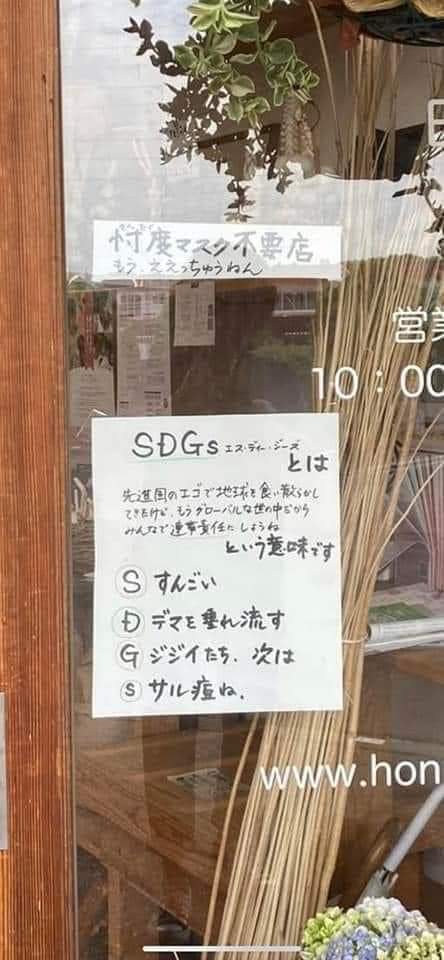 忖度マスク不要店
もう、ええっちゅうねん
営業
10：00
SDGs エス・ディー・ジーズ
とは
先進国のエゴで地球を食い散らかし
てきたけど、もうグローバルな世の中だから
みんなで連帯責任にしようね
という意味です
S すんごい
D デマを垂れ流す
G ジジイたち、次は
s サル痘ね。
www.hon